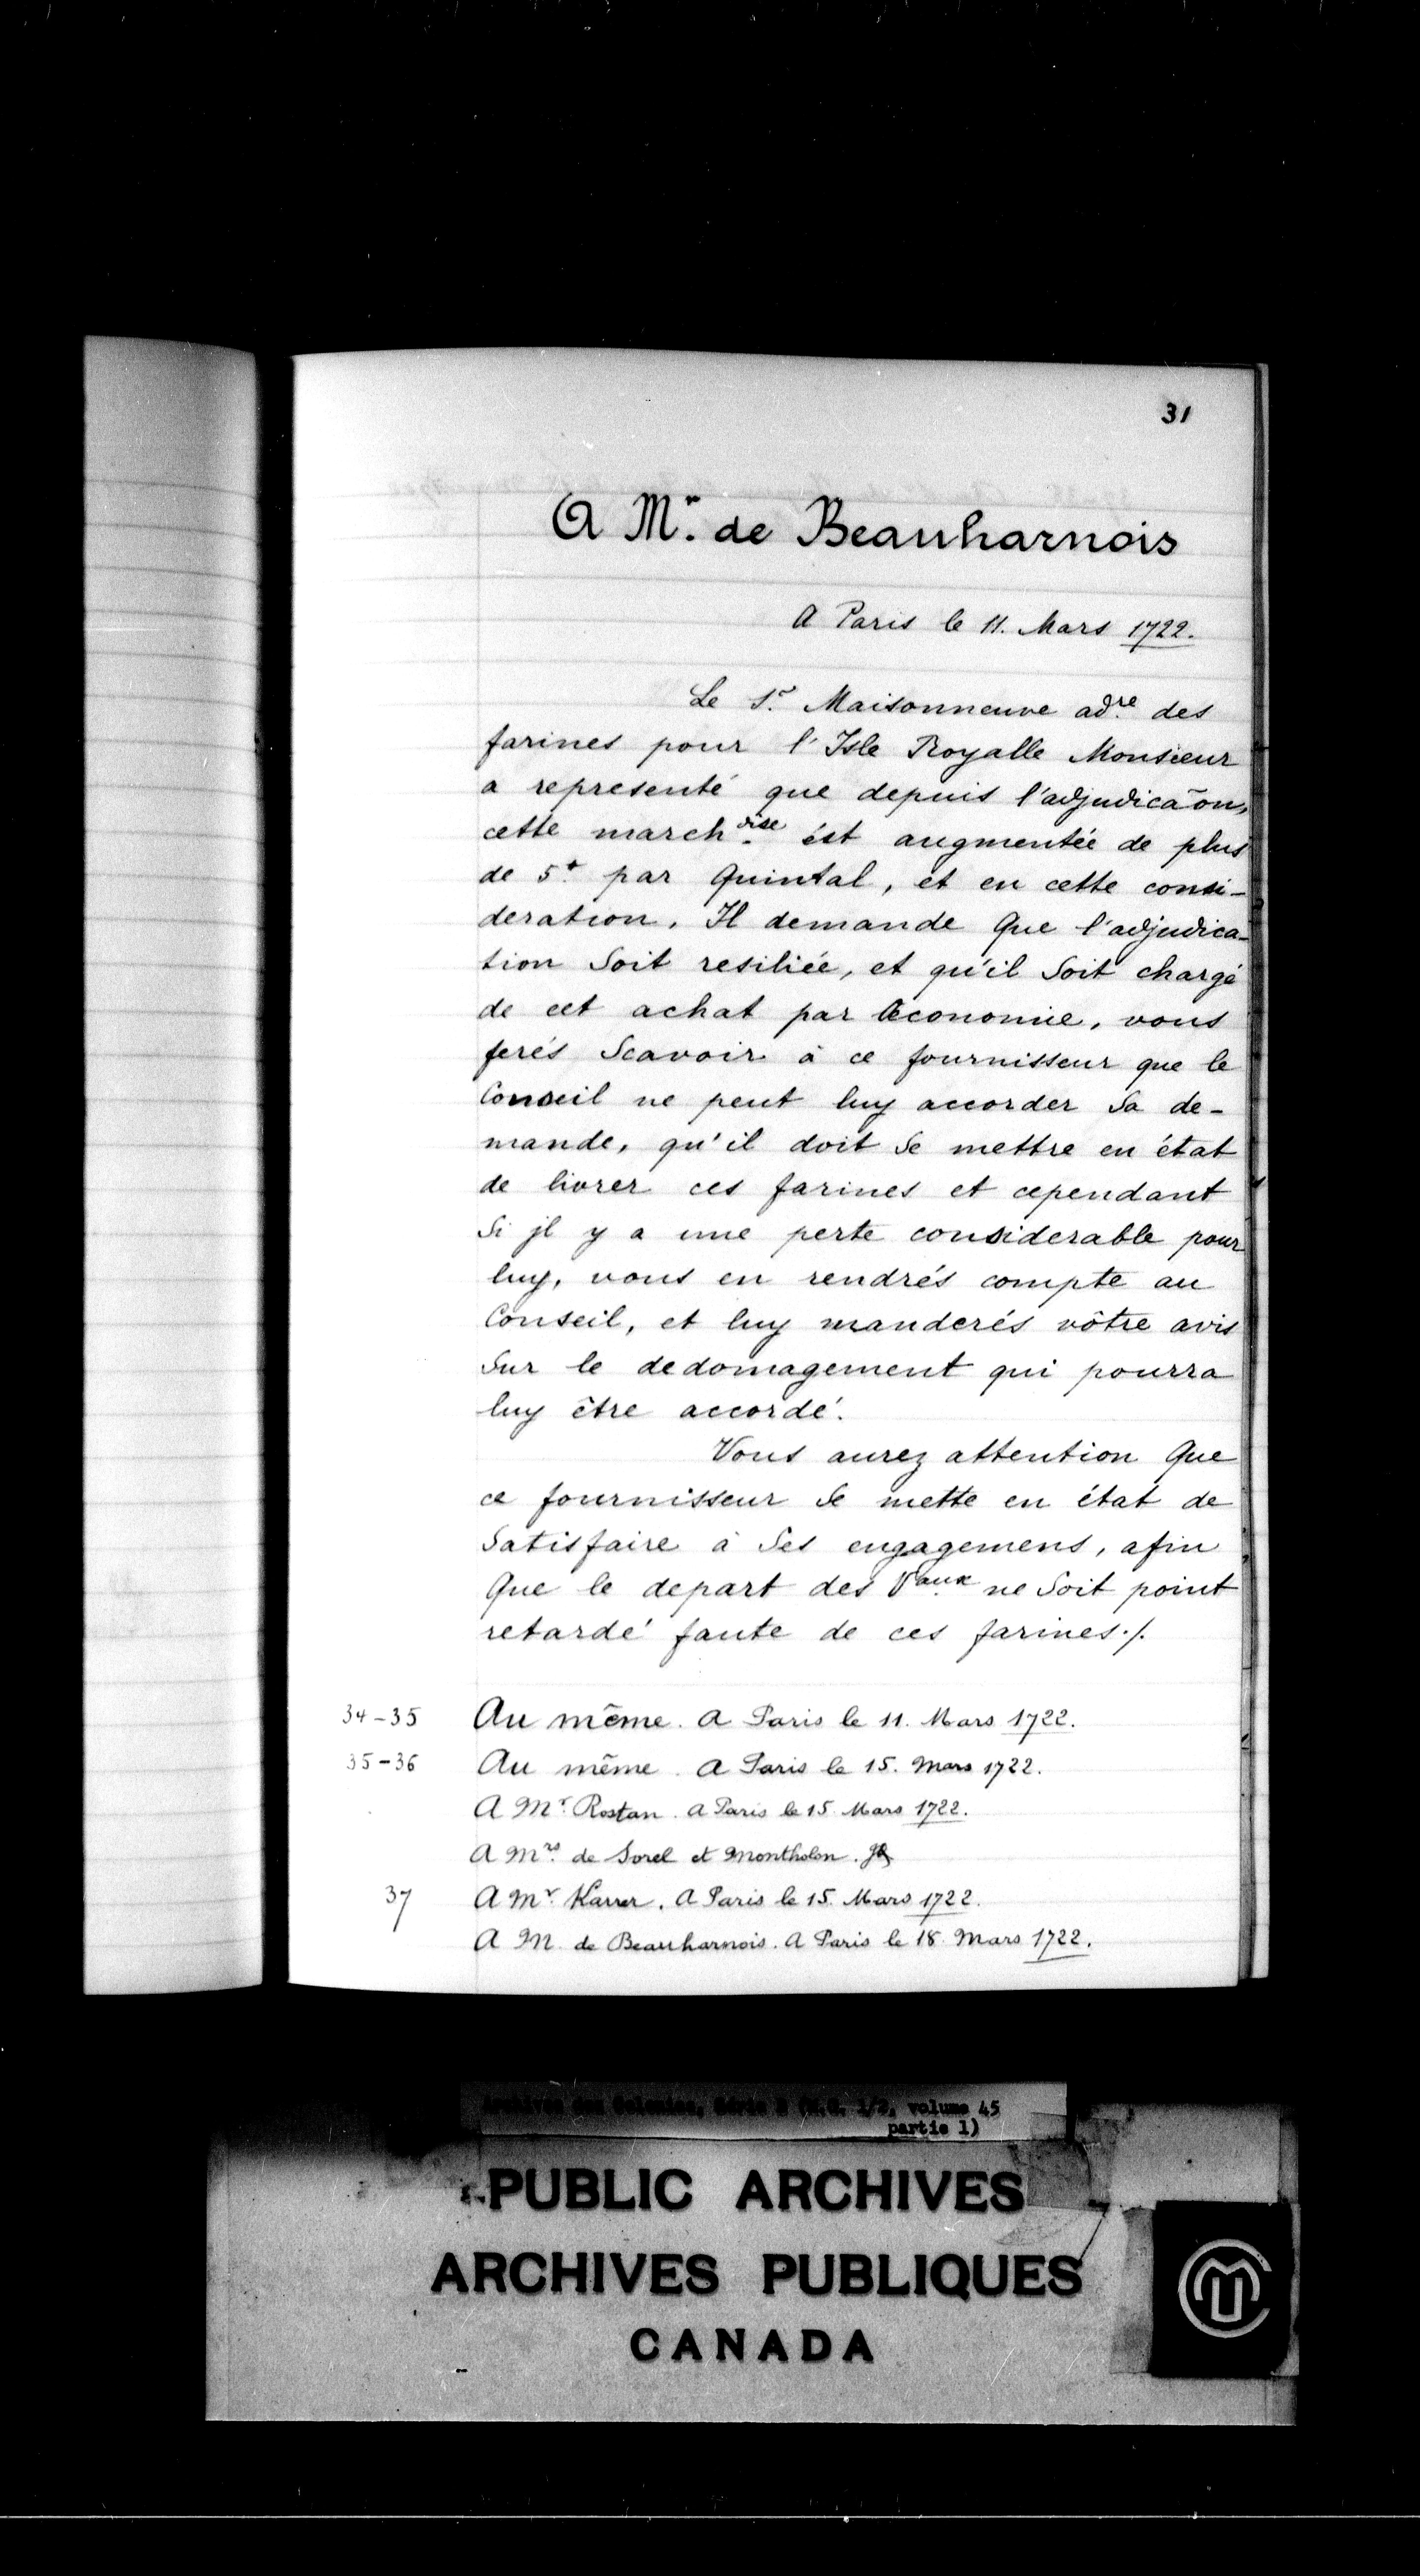 31
A Mr. de Beauharnois
A Paris le 11. Mars 1722.
Le Sr. Maisonneuve adre. des
farines pour l'Isle Royalle Monsieur
a representé que depuis l'adjudicãon,
cette marchdise. ést augmentée de plus
de 5ᵗ. par Quintal, et en cette consi-
deration, Il demande Que l'adjudica-
tion Soit resiliée, et qu'il Soit chargé
de cet achat par Œconomie, vous
ferés Scavoir à ce fournisseur que le
Conseil ne peut luy accorder Sa de-
mande, qu'il doit Se mettre en état
de livrer ces farines et cependant
Si jl y a une perte considerable pour
luy, vous en rendrés compte au
Conseil, et luy manderés vôtre avis
Sur le dedomagement qui pourra
luy être accordé.
Vous aurez attention Que
ce fournisseur Se mette en état de
Satisfaire à Ses engagemens, afin
Que le depart des Vaux. ne Soit point
retardé faute de ces farines./.
34-35 Au même. A Paris le 11. Mars 1722.
35-36 Au même. A Paris le 15. Mars 1722.
A Mr. Rostan. A Paris le 15 Mars 1722.
A Mrs. de Sorel et Montholon.
37 A Mr. Karrer. A Paris le 15. Mars 1722.
A M. de Beauharnois. A Paris le 18. Mars 1722.
Archives des Colonies, Série B (M.G. 1/2, volume 45
partie 1)
PUBLIC ARCHIVES
ARCHIVES PUBLIQUES
CANADA